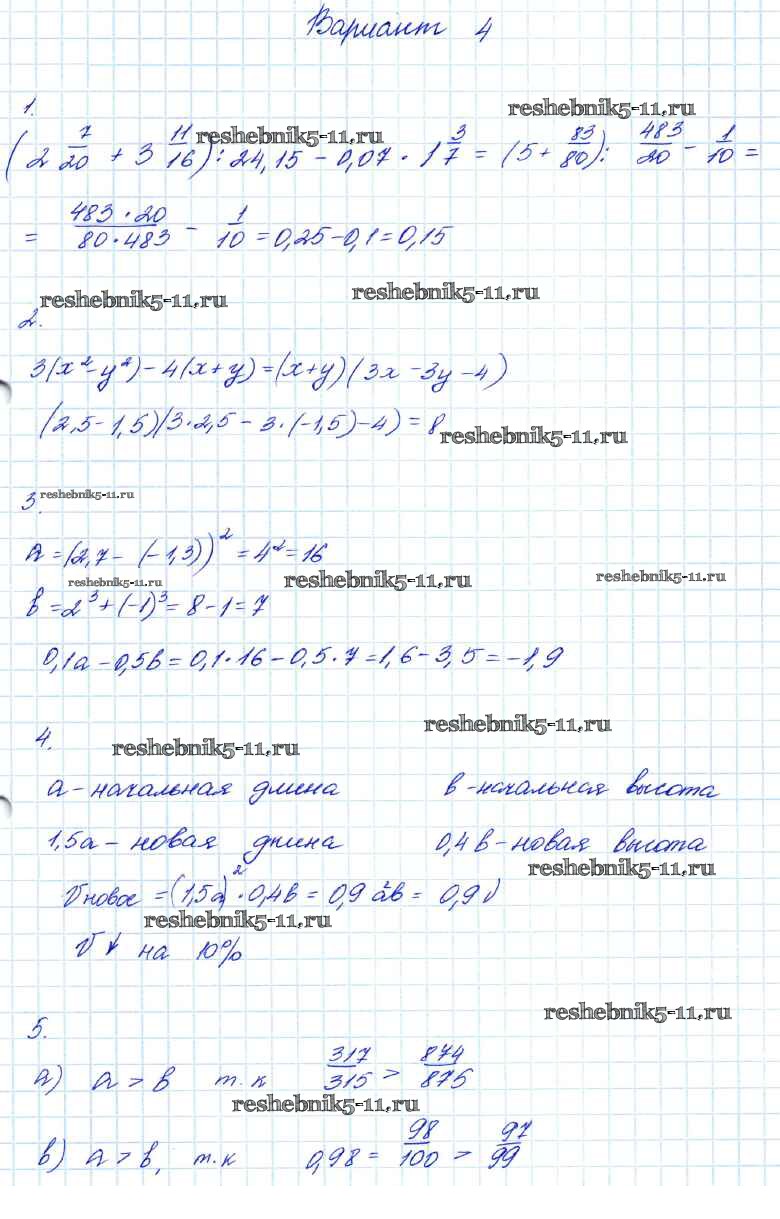 Вариант 4
1.
reshebnik5-11.ru
reshebnik5-11.ru
(2 7/20 + 3 11/16) : 24,15 - 0,07 · 1 3/7 = (5 + 83/80) : 483/20 - 1/10 =
= 483·20/80·483 - 1/10 = 0,25 - 0,1 = 0,15
reshebnik5-11.ru
reshebnik5-11.ru
2.
3(x² - y²) - 4(x + y) = (x + y)(3x - 3y - 4)
(2,5 - 1,5)(3·2,5 - 3·(-1,5) - 4) = 8
reshebnik5-11.ru
3.
reshebnik5-11.ru
a = (2,7 - (-1,3))² = 4² = 16
reshebnik5-11.ru
reshebnik5-11.ru
reshebnik5-11.ru
b = 2³ + (-1)³ = 8 - 1 = 7
0,1a - 0,5b = 0,1·16 - 0,5·7 = 1,6 - 3,5 = -1,9
4.
reshebnik5-11.ru
reshebnik5-11.ru
a - начальная длина b - начальная высота
1,5a - новая длина 0,4b - новая высота
reshebnik5-11.ru
V новое = (1,5a)² · 0,4b = 0,9a²b = 0,9V
reshebnik5-11.ru
V ↓ на 10%
reshebnik5-11.ru
5.
a) a > b т.к 317/315 > 874/875
reshebnik5-11.ru
в) a > b, т.к 0,98 = 98/100 > 97/99